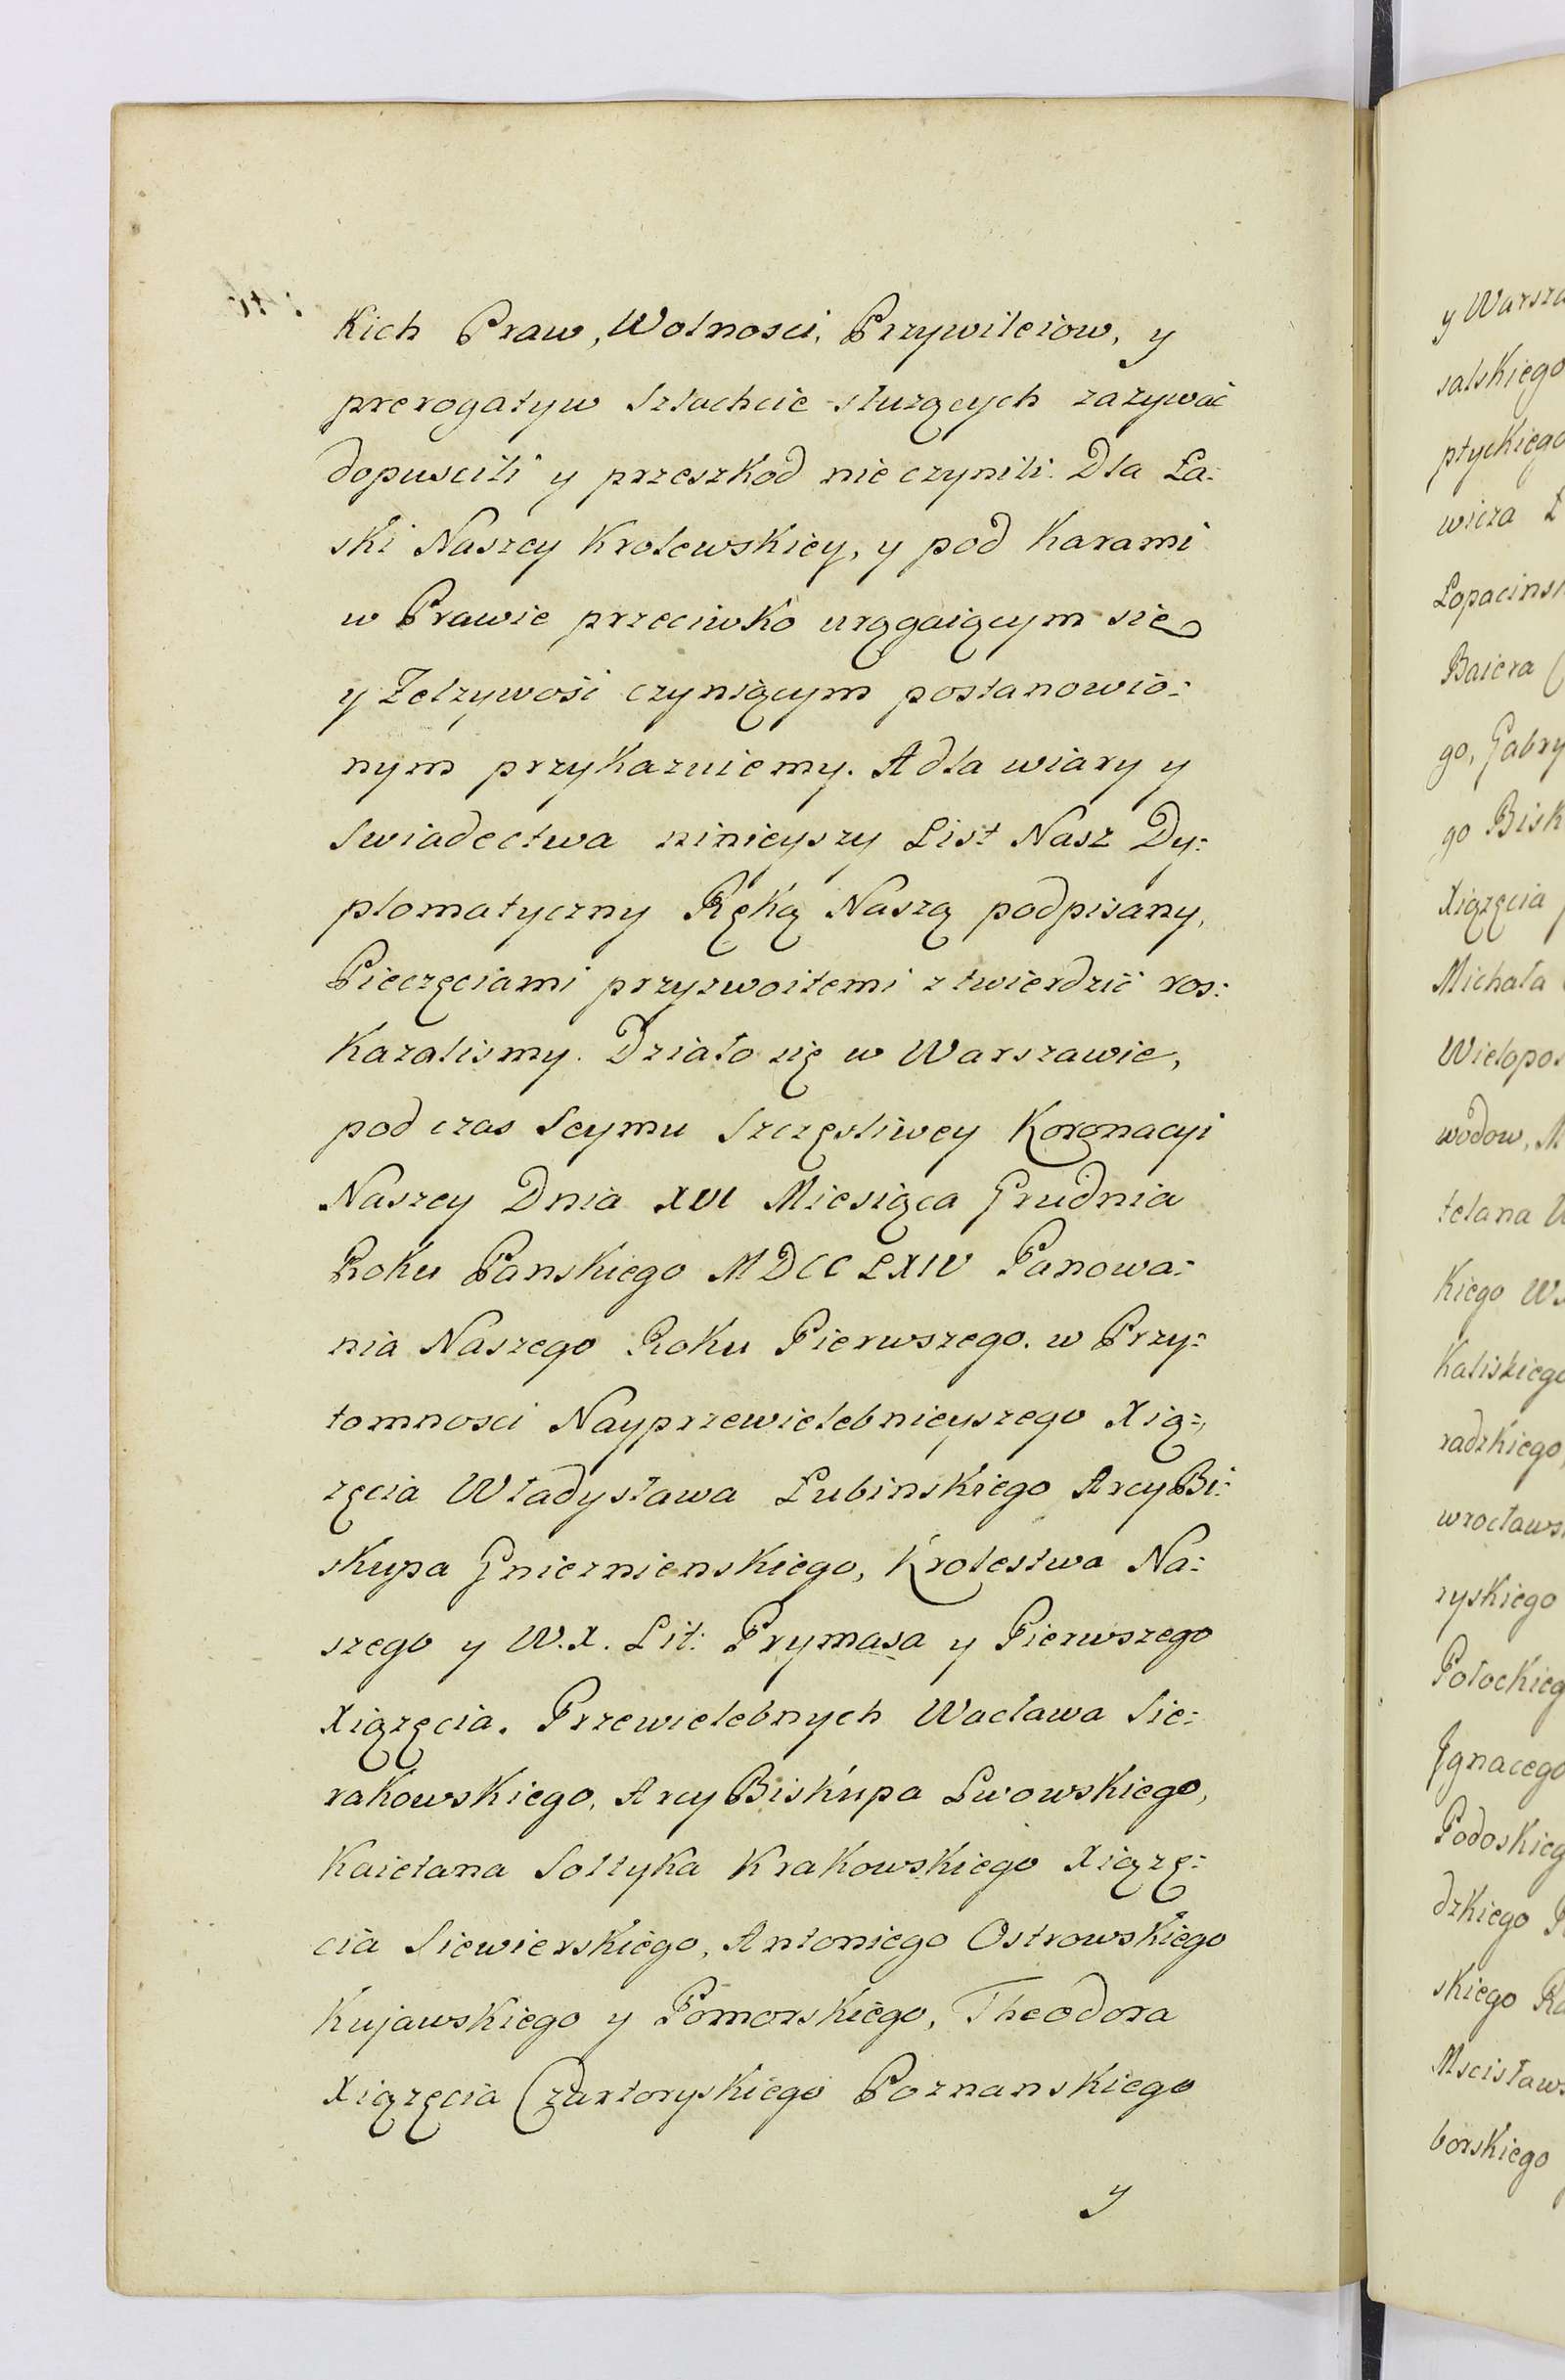 kich Praw, Wolnosci, Przywileiow, y
prerogatyw Szlachcie słuzących zazywać
dopuscili y przeszkod nie czynili. Dla Ła:
ski Naszey Krolewskiey, y pod karami
w Prawie przeciwko urągaiącym się
y Zelzywośi czyniącym postanowio:
nym przykazuiemy. A dla wiary y
Swiadectwa ninieyszy List Nasz Dy:
plomatyczny Ręką Naszą podpisany,
Pieczęciami przyzwoitemi ztwierdzić ros:
kazalismy. Działo się w Warszawie,
pod czas Seymu Szczęsliwey Koronacyi
Naszey Dnia XVI Miesiąca Grudnia
Roku Panskiego MDCCLXIV Panowa:
nia Naszego Roku Pierwszego. w Przy:
tomnosci Nayprzewielebnieyszego Xią:
zęcia Władysława Łubinskiego ArcyBi:
skupa Gnieznienskiego, Krolestwa Na:
szego y W.X. Lit: Prymasa y Pierwszego
Xiązęcia. Przewielebnych Wacława Sie:
rakowskiego, ArcyBiskupa Lwowskiego,
Kaietana Sołtyka Krakowskiego Xiązę:
cia Siewierskiego, Antoniego Ostrowskiego
Kujawskiego y Pomorskiego, Theodora
Xiązęcia Czartoryskiego Poznanskiego
y
y Warsza
salskiego
ptyckiego
wicza
Łopacinsk
Baiera
go, Gabry
go Bisk
Xiązęcia
Michała
Wielopol
wodow, M
telana W
kiego Ws
Kaliskiego
radzkiego,
wrocławs
ryskiego
Potockieg
Ignacego
Podoskieg
dzkiego
skiego
Mscisław
borskiego